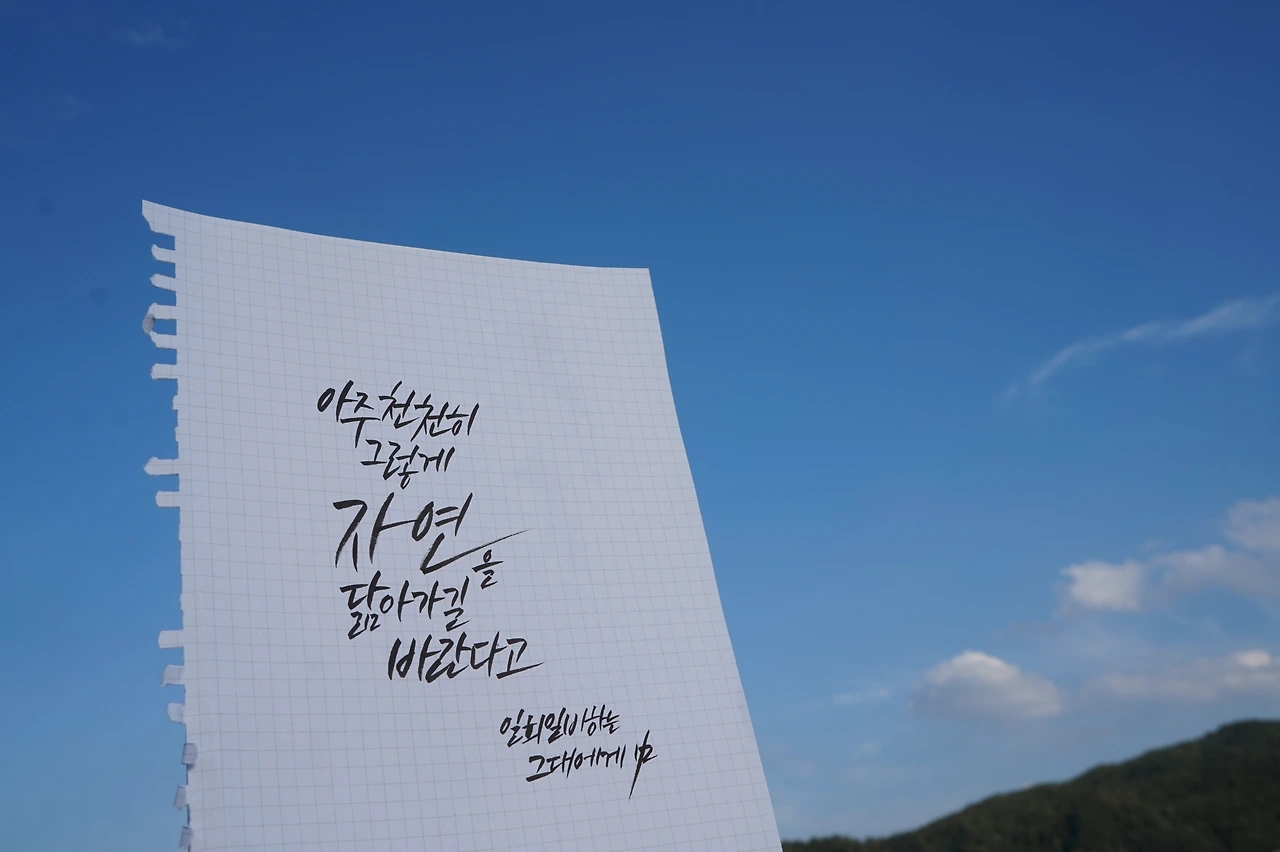 아주 천천히
그렇게
자연을
닮아가길
바란다고
일희일비하는
그대에게 中